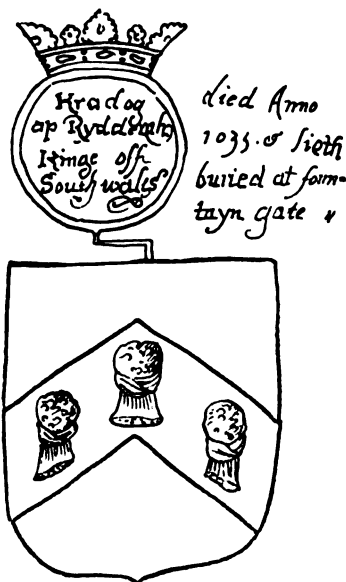 Kradog
ap Rydderch
Kinge off
South wales
died Anno
1035. & lieth
buried at foun-
tayn gate